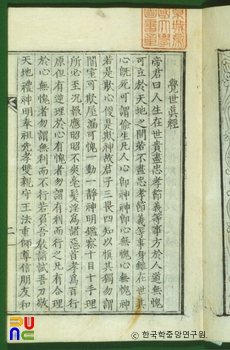 覺世眞經
帝君曰人生在世貴盡忠孝節義等事方於人道無愧
可立於天地之間若不盡忠孝節義等事身雖在世其
心旣死可謂偸生凡人心卽神神卽心無愧心無愧神
若是欺心便是欺神故君子三畏四知以愼其獨勿謂
闇室可欺屋漏可愧一動一靜神明鑑察十目十手理
所必至況報應昭昭不爽毫髮淫爲萬惡首孝爲百行
原但有逆理於心有愧者勿謂有利而行之凡有合理
於心無愧者勿謂無利而不行若負吾敎請試吾刀敬
天地禮神明奉祖先孝雙親守王法重師尊信朋友和
ⓒ 한국학중앙연구원